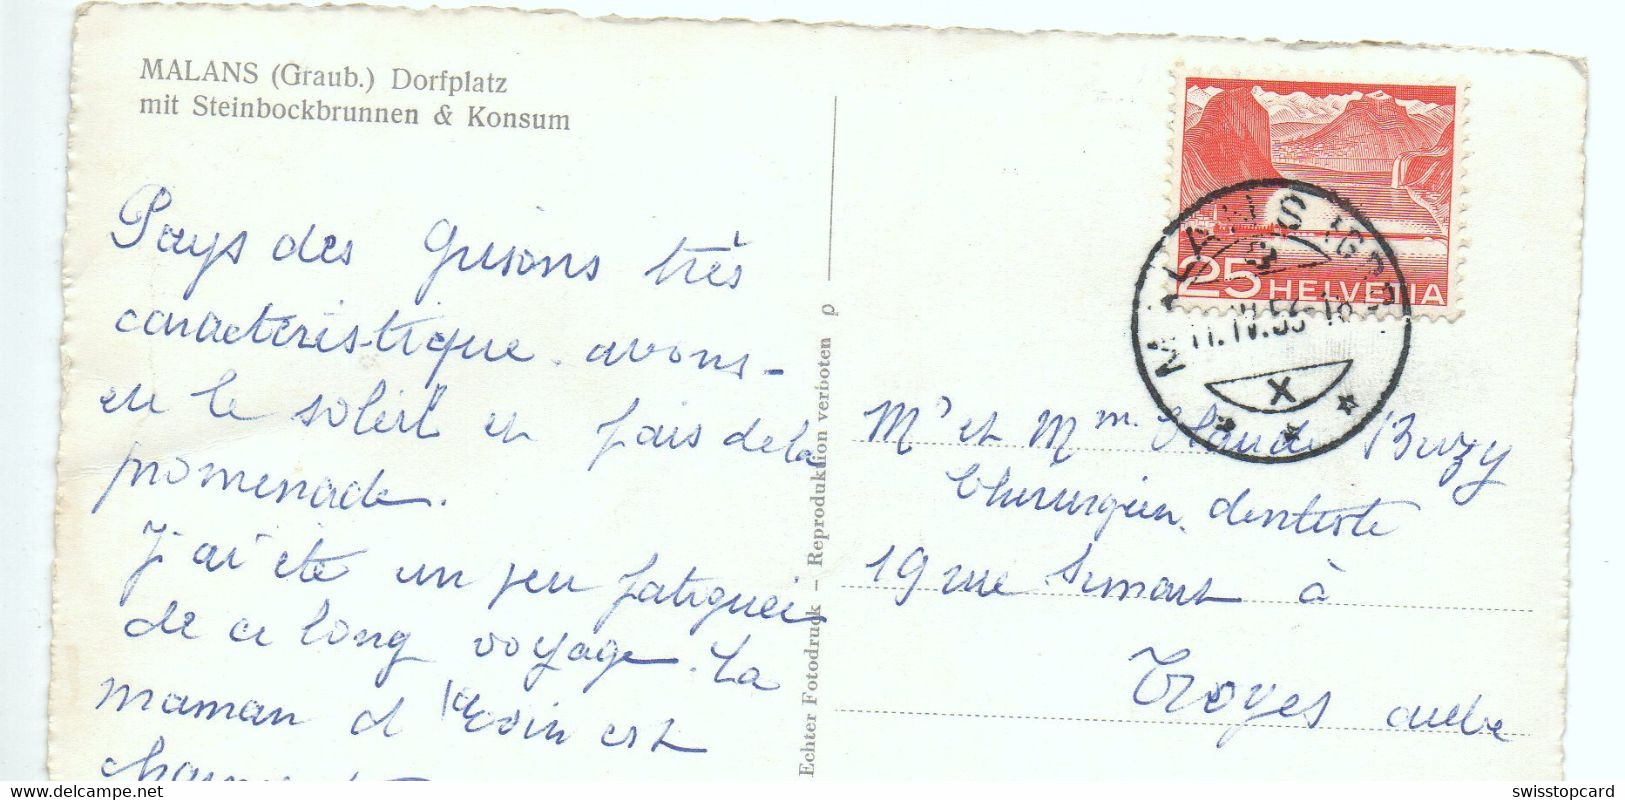 MALANS (Graub.) Dorfplatz
mit Steinbockbrunnen & Konsum
Pays des Grisons très
caractéristique. avons-
en le soleil et fais de la
promenade.
J'ai été un peu fatiguée
de ce long voyage. La
maman d' est
Echter Fotodruck – Reproduktion verboten
25 HELVETIA
MALANS (GR)
11.IV.55-18
X
Mr et Mme Claude Buzy
Chirurgien dentiste
19 rue Simart à
Troyes aube
swisstopcard